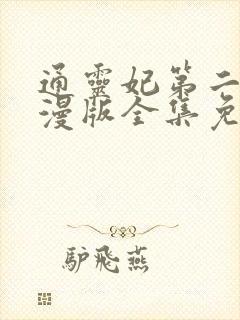 通靈妃第二
漫版全集免
驴飛燕